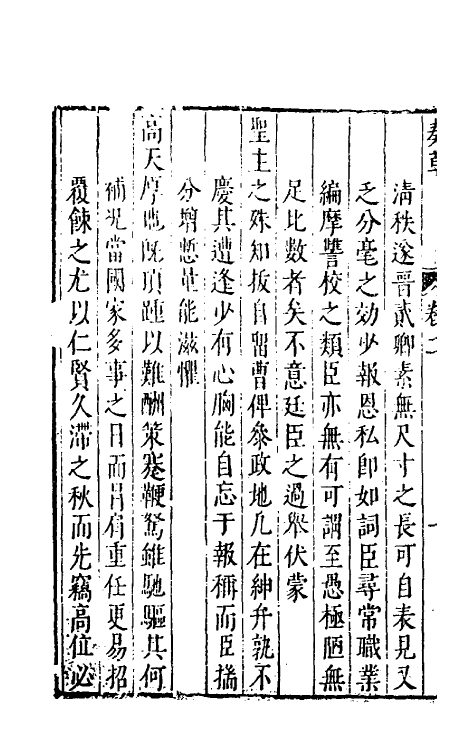 奏草 卷六
清秩遂晉貳卿素無尺寸之長可自表見又
乏分毫之効少報恩私即如詞臣尋常職業
編摩讐校之類臣亦無有可謂至愚極陋無
足比數者矣不意廷臣之過舉伏蒙
聖主之殊知拔自留曹俾參政地凡在紳弁孰不
慶其遭逢少有心胸能自忘于報稱而臣揣
分增慙量能滋懼
高天厚地既頂踵以難酬策蹇鞭駑雖馳驅其何
補況當國家多事之日而肩重任更易招
覆餗之尤以仁賢久滯之秋而先竊高位必